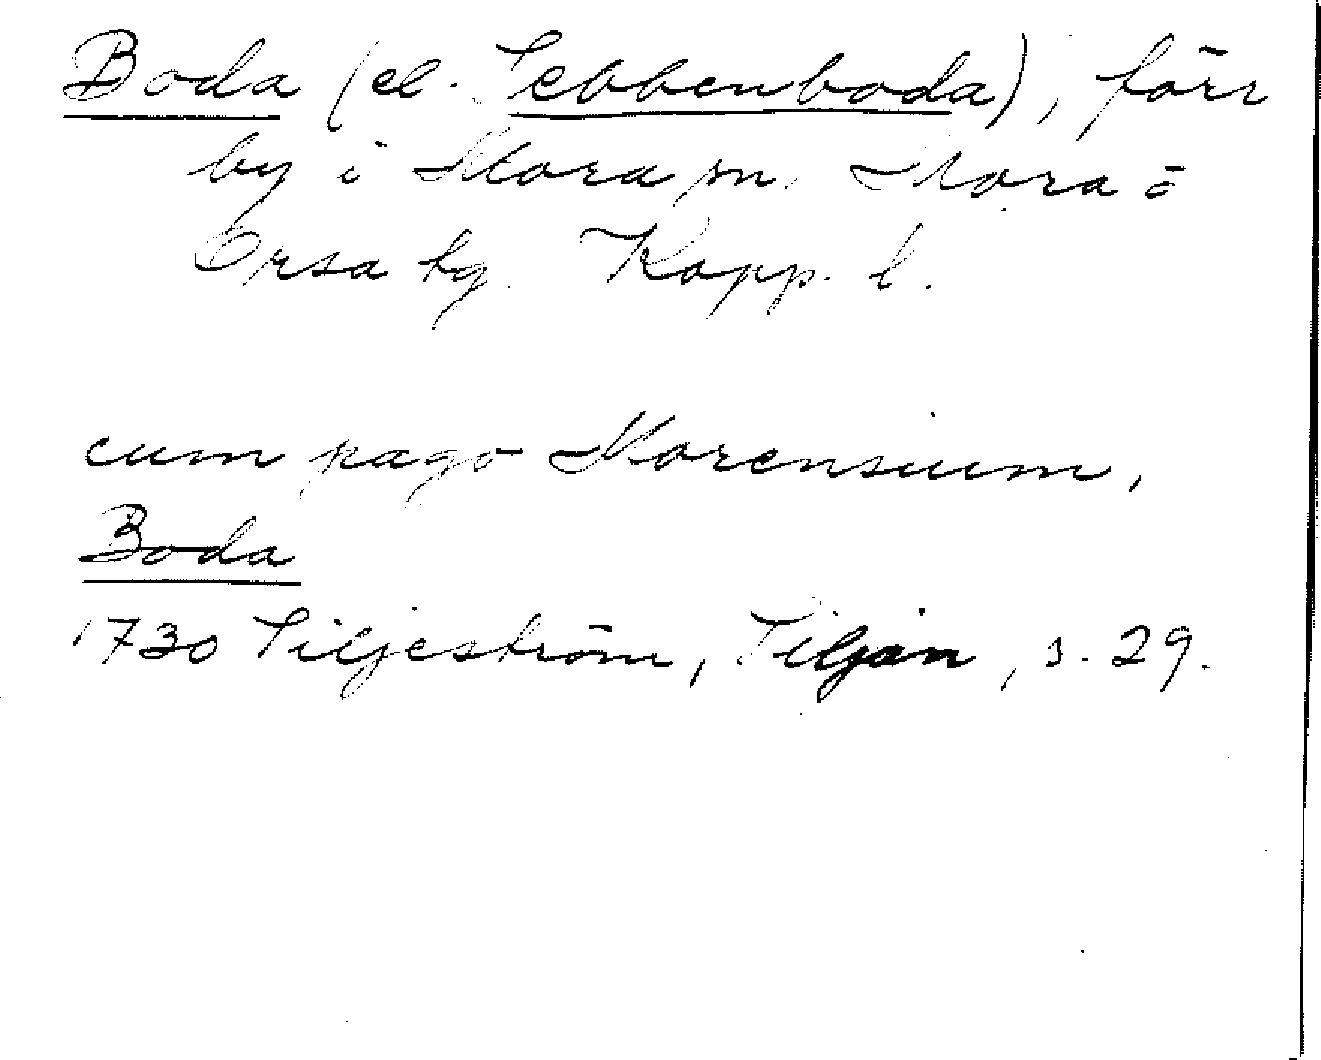 Boda (el. Sebbenboda), förr
by i Mora sn. Mora o
Orsa tg. Kopp. l.
cum pago Morensium,
Boda
1730 Siljeström, Siljan, s. 29.